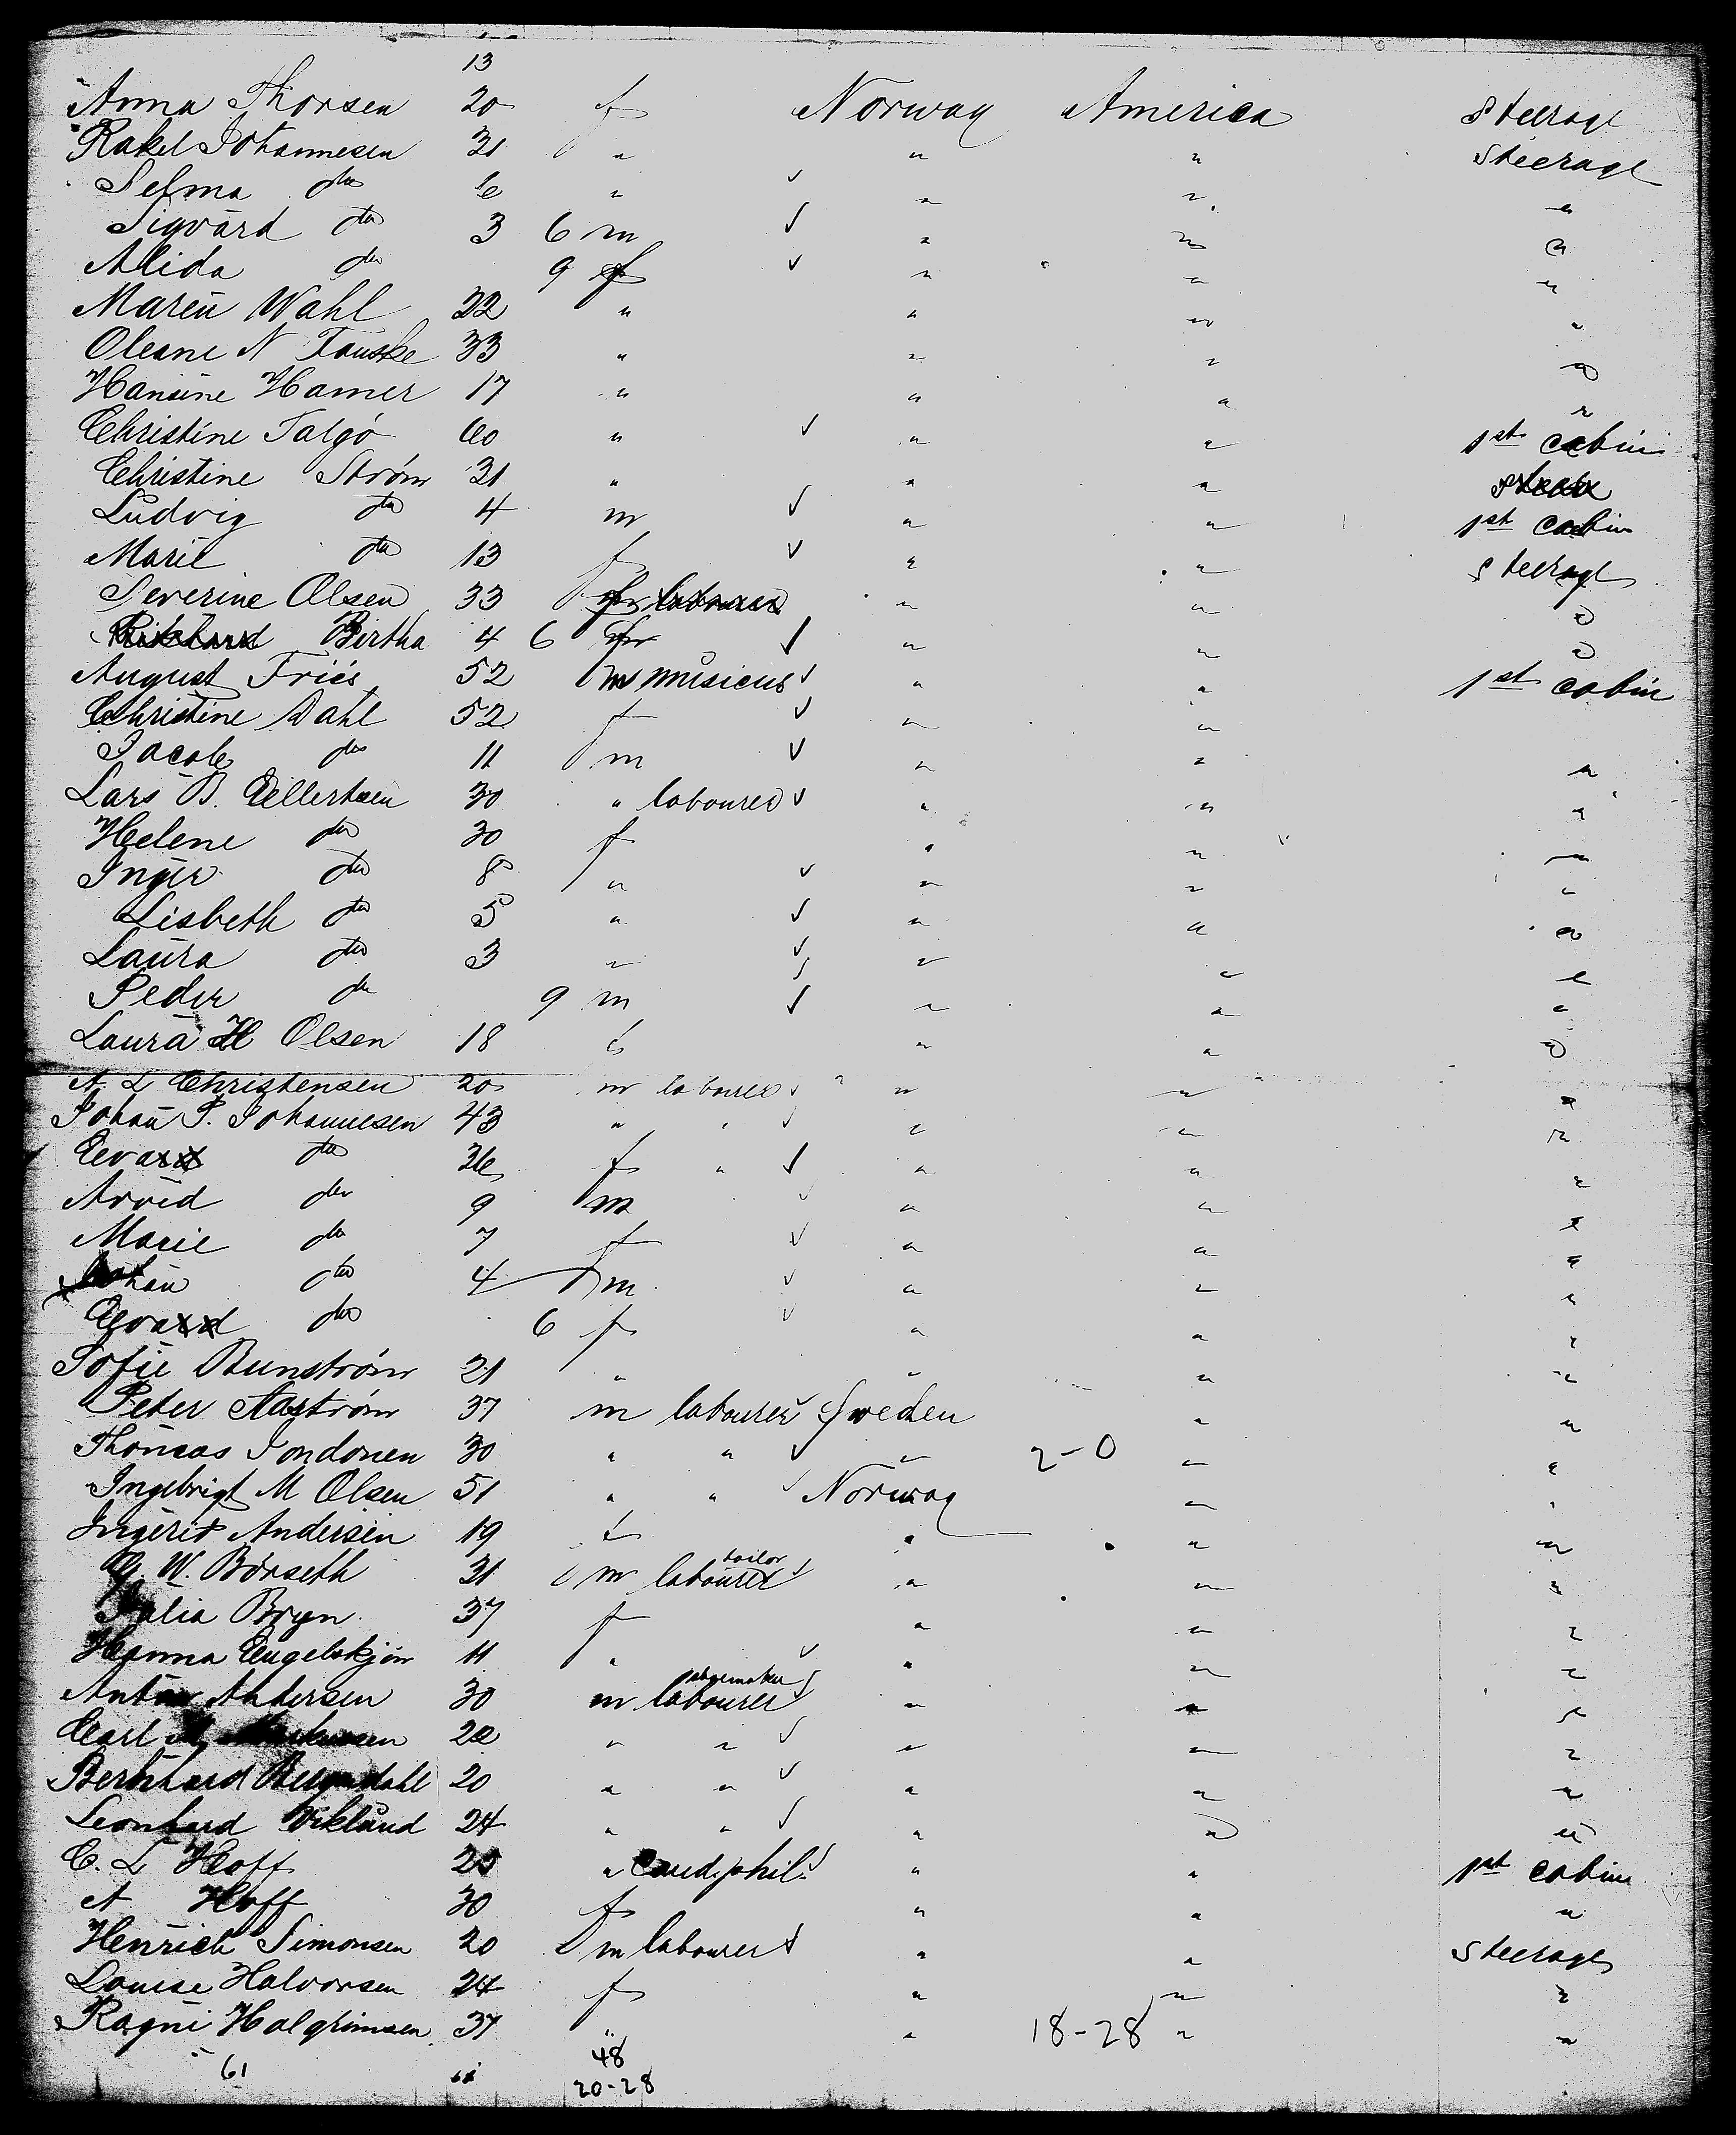 13
Anna Thorsen 20 f Norway America Steerage
Rakel Johannesen 31 " " " Steerage
Selma do 6 " ✓ " " "
Sigvard do 3 6 m ✓ " " "
Alida do 9 f ✓ " " "
Maren Wahl 22 " " " "
Oleane N Fauske 33 " " " "
Hansine Hamer 17 " " " "
Christine Talgö 60 " ✓ " " 1st cabin
Christine Ström 31 " " "
Ludvig do 4 m ✓ " " 1st cabin
Marie do 13 f ✓ " " Steerage
Severine Olsen 33 f labourer " " "
Rikhard Bertha 4 6 ✓ " " "
August Friés 52 m musicus ✓ " " 1st cabin
Christine Dahl 52 f ✓ " "
Jacob do 11 m ✓ " " "
Lars B. Ellertsen 30 " labourer ✓ " " "
Helene do 30 f " " "
Inger do 8 " ✓ " " "
Lisbeth do 5 " ✓ " " "
Laura do 3 " ✓ " " "
Peder do 9 m ✓ " " "
Laura H Olsen 18 f " " "
A. L Christensen 20 m labourer ✓ " " "
Johan P. Johannesen 43 " " ✓ " " "
Eva do 36 f " ✓ " " "
Arvid do 9 m ✓ " " "
Marie do 7 f ✓ " " "
do 4 m ✓ " " "
do 6 f ✓ " " "
Sofie Bunström 21 " " " "
Peter Aaström 37 m labourer ✓ Sweden " "
Thomas 30 " " ✓ " 2-0 " "
Ingebrigt M Olsen 51 " " ✓ Norway " "
Ingerid Andersen 19 f " " "
W. Börseth 31 m labourer tailor ✓ " " "
Julia Bryn 37 f " " "
Hanna Engelskjön 11 " ✓ " " "
Anton Andersen 30 m labourer shoemaker ✓ " " "
Carl 22 " " ✓ " " "
Bernhard Bergendahl 20 " " ✓ " " "
Leonhard Viklund 24 " " ✓ " " "
C. L Hoff 25 " Cand. phil. ✓ " " 1st cabin
A Hoff 30 f " " "
Henrich Simonsen 20 m labourer ✓ " " Steerage
Louise Halvorsen 24 f " " "
Ragni Halgrimsen 37 " " 18-28 " "
61 48
20-28